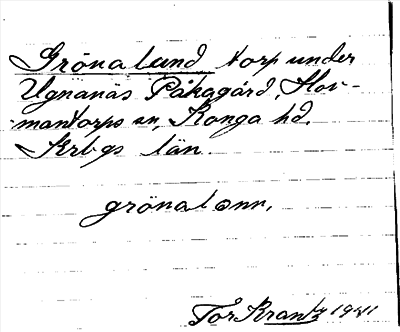 Gröna lund torp under
Ugnanäs Påkagård, Hov-
mantorps sn, Konga hd.
Krbgs län.
grönalənn.
Tor Krantz 1941